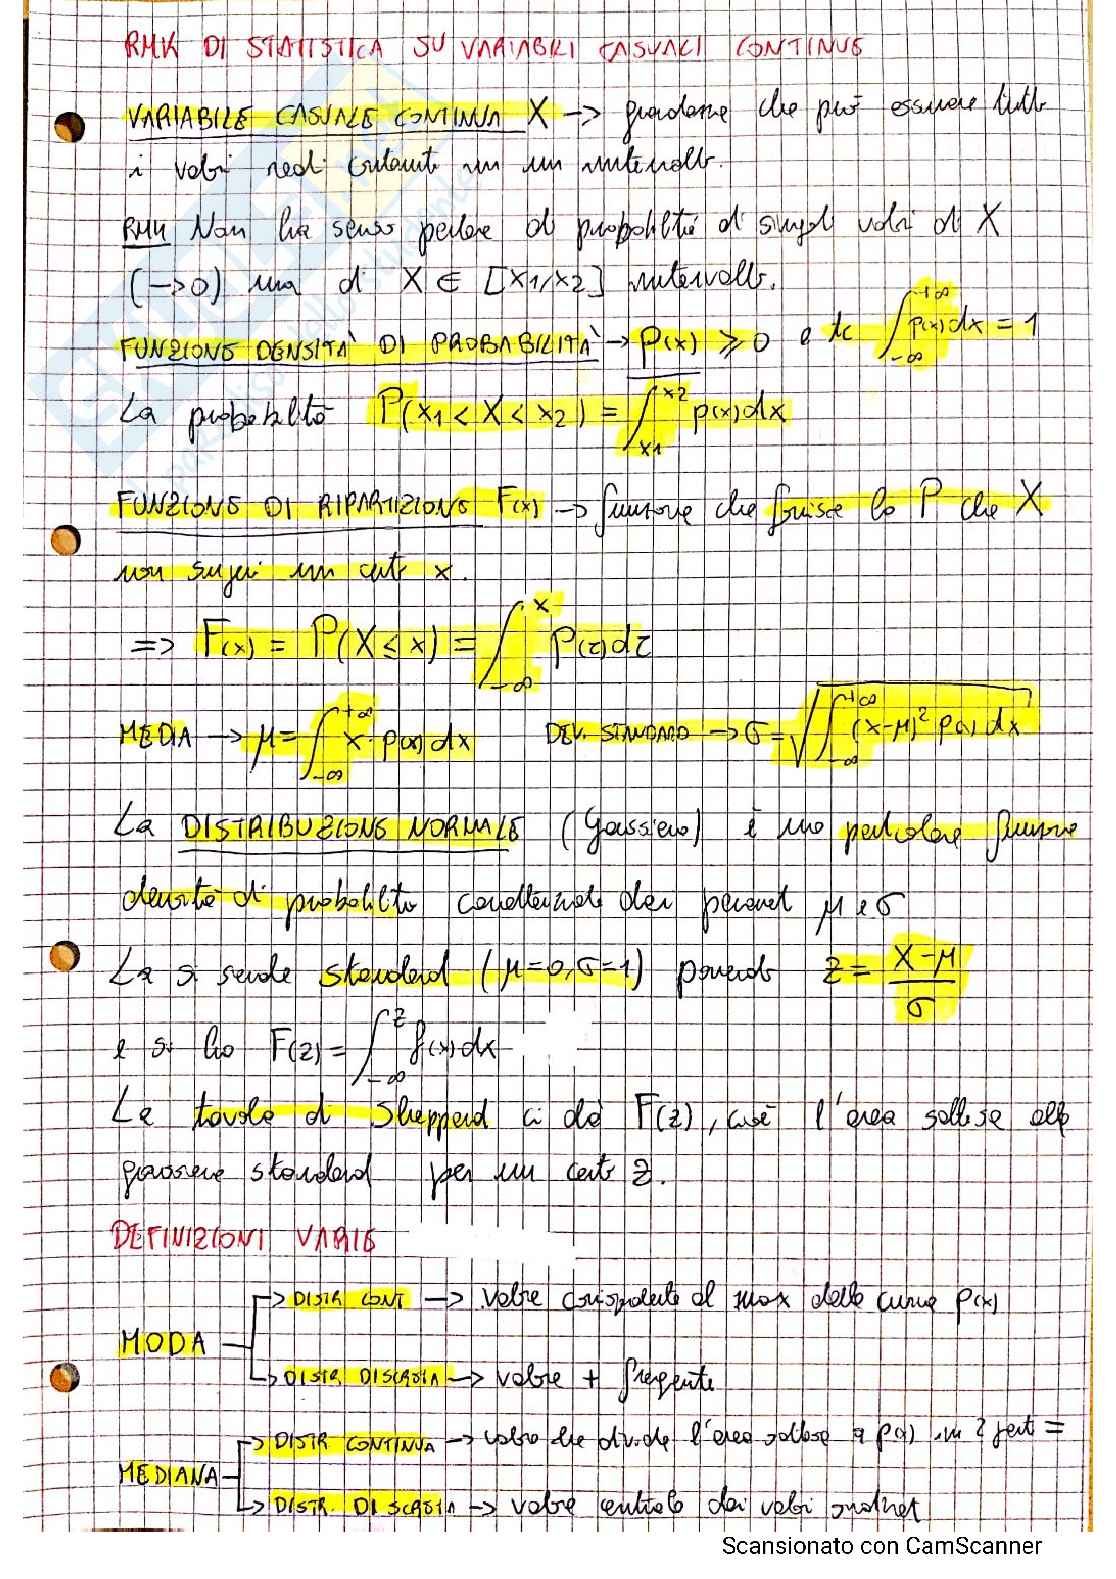 RMK DI STATISTICA SU VARIABILI CASUALI CONTINUE
VARIABILE CASUALE CONTINUA X -> grandezza che può assumere tutti
i valori reali contenuti in un intervallo.
RMK Non ha senso parlare di probabilità di singoli valori di X
(->0) ma di X ∈ [x1,x2] intervallo.
FUNZIONE DENSITA' DI PROBABILITA' -> p(x) ≥ 0 e tc ∫_{-∞}^{+∞} p(x)dx = 1
La probabilità P(x1 < X < x2) = ∫_{x1}^{x2} p(x)dx
FUNZIONE DI RIPARTIZIONE F(x) -> funzione che fornisce la P che X
non superi un certo x.
=> F(x) = P(X ≤ x) = ∫_{-∞}^{x} p(z)dz
MEDIA -> μ = ∫_{-∞}^{+∞} x · p(x) dx DEV. STANDARD -> σ = √∫_{-∞}^{+∞} (x-μ)² p(x) dx
La DISTRIBUZIONE NORMALE (Gaussiana) è una particolare funzione
densità di probabilità caratterizzata dai parametri μ e σ
La si rende standard (μ=0, σ=1) ponendo z = (X-μ)/σ
e si ha F(z) = ∫_{-∞}^{z} f(x)dx
La tavola di Sheppard ci dà F(z), cioè l'area sottesa alla
gaussiana standard per un certo z.
DEFINIZIONI VARIE
MODA
-> DISTR CONT -> valore corrispondente al max della curva p(x)
-> DISTR DISCRETA -> valore + frequente
MEDIANA
-> DISTR CONTINUA -> valore che divide l'area sottesa a p(x) in 2 parti =
-> DISTR. DISCRETA -> valore centrale dei valori ordinati
Scansionato con CamScanner